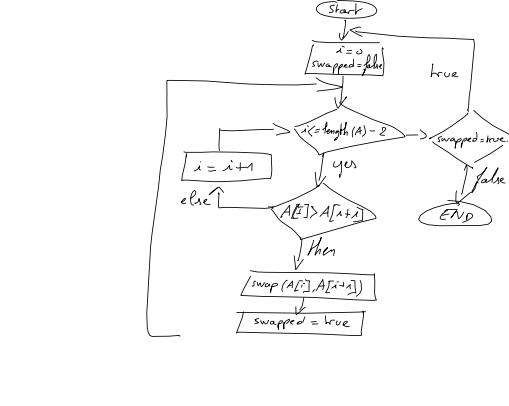 Start
i=0
swapped=false
true
i<=length(A)-2
swapped=true
yes
i = i+1
false
else
A[i]>A[i+1]
END
then
swap(A[i],A[i+1])
swapped = true